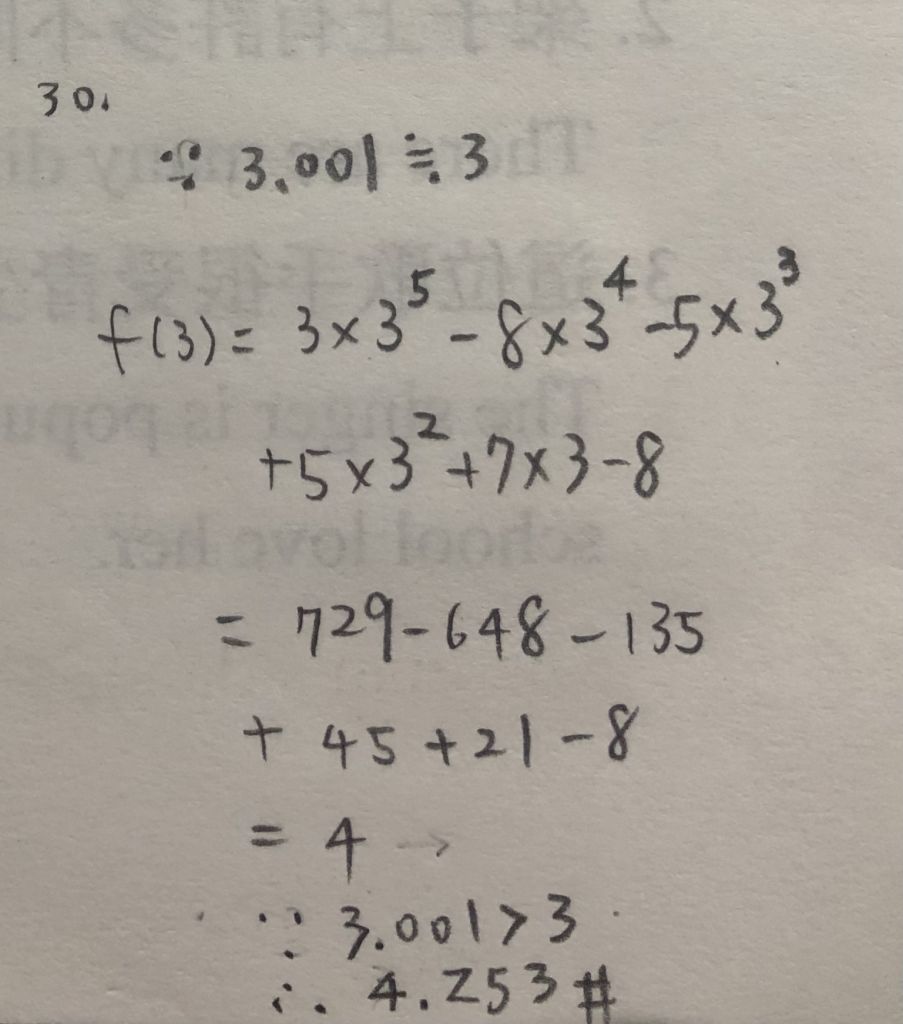 30.
∵ 3.001 ≒ 3
f(3) = 3×3⁵ - 8×3⁴ - 5×3³
+5×3² + 7×3 - 8
= 729 - 648 - 135
+ 45 + 21 - 8
= 4 →
∵ 3.001 > 3
∴ 4.253 #